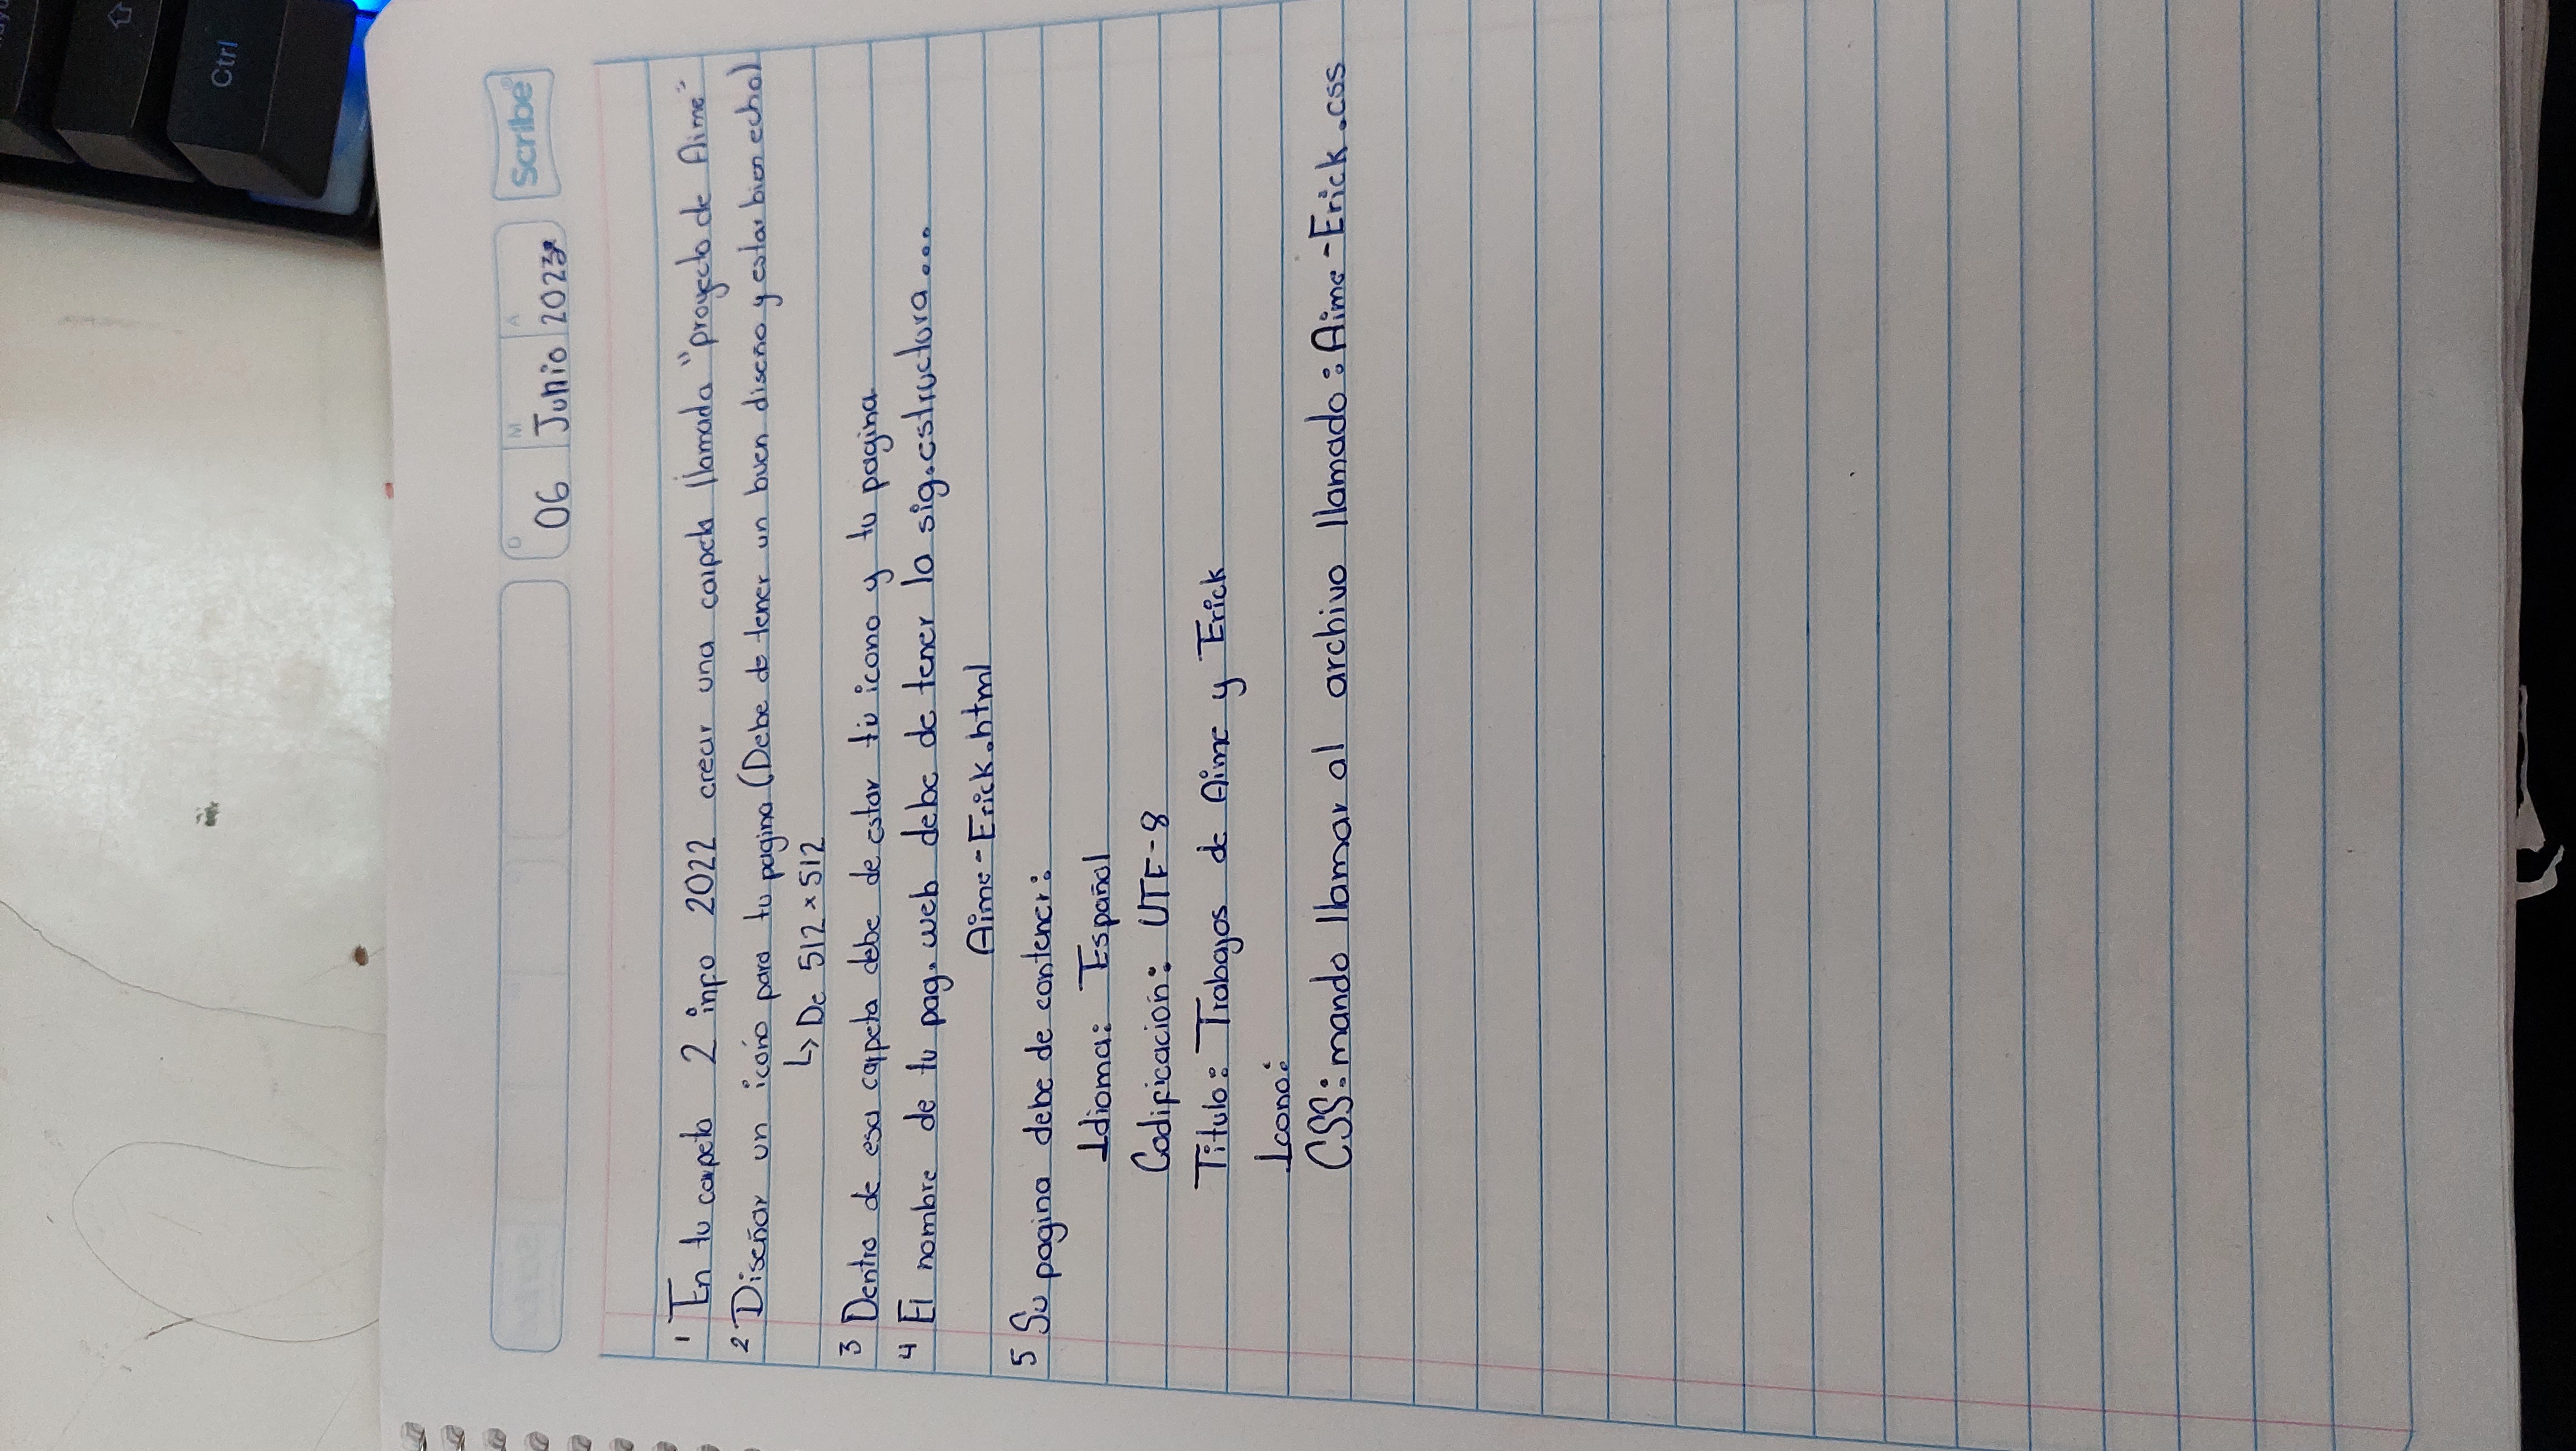 D M A
06 Junio 2023
Scribe
1 En tu carpeta 2 info 2022 crear una carpeta llamada "proyecto de Aime"
2 Diseñar un icono para tu pagina (Debe de tener un buen diseño y estar bien echo)
↳ De 512 x 512
3 Dentro de esa carpeta debe de estar tu icono y tu pagina
4 El nombre de tu pag. web debe de tener la sig. estructura....
Aime-Erick.html
5 Su pagina debe de contener:
Idioma: Español
Codificación: UTF-8
Título: Trabajos de Aime y Erick
Icono:
CSS: mando llamar al archivo llamado: Aime-Erick.css
Ctrl